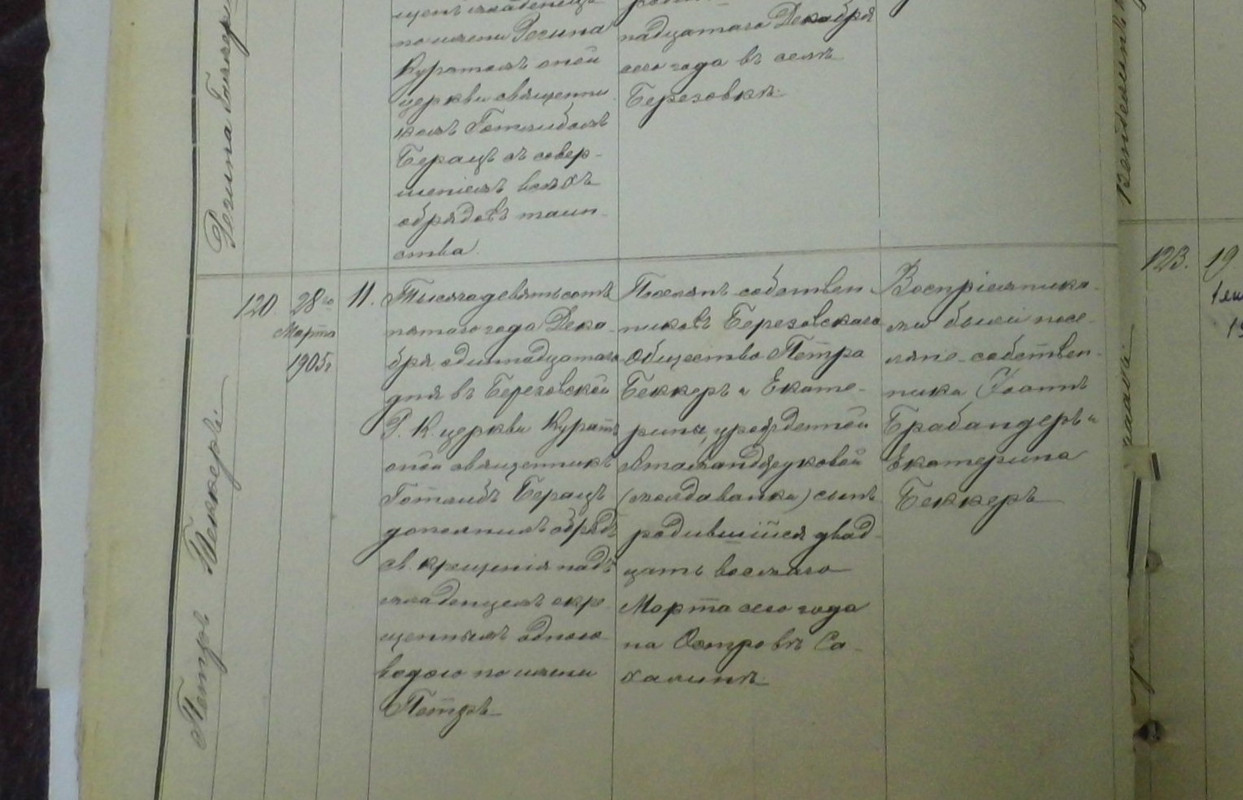 Регина
щенъ младенецъ
по имени Регина
Куратомъ оной
церкви священни
комъ Готлибомъ
Берацъ съ совер-
шенiемъ всѣхъ
обрядовъ таин-
ства.
надцатаго Декабря
сего года въ селѣ
Березовкѣ.
Петръ Беккеръ
120
28го
Марта
1905г
11.
Тысяча девятьсотъ
пятаго года Дека-
бря одиннадцатаго
дня въ Березовской
Р. К церкви Куратъ
оной священникъ
Готлибъ Берацъ
дополнилъ обряды
св крещенiя надъ
младенцемъ окре-
щеннымъ одною
водою по имени
Петръ
Поселянъ собствен-
никовъ Березовскаго
Общество Петра
Беккеръ и Екате-
рины, урожденной
(молдаванка) сынъ
родившiйся двад-
цать восьмаго
Марта сего года
на Островѣ Са-
халинѣ.
Воспрiемника-
ми были посе-
ляне-собствен-
ники Iоаннъ
Брабандеръ и
Екатерина
Беккеръ
123.
19